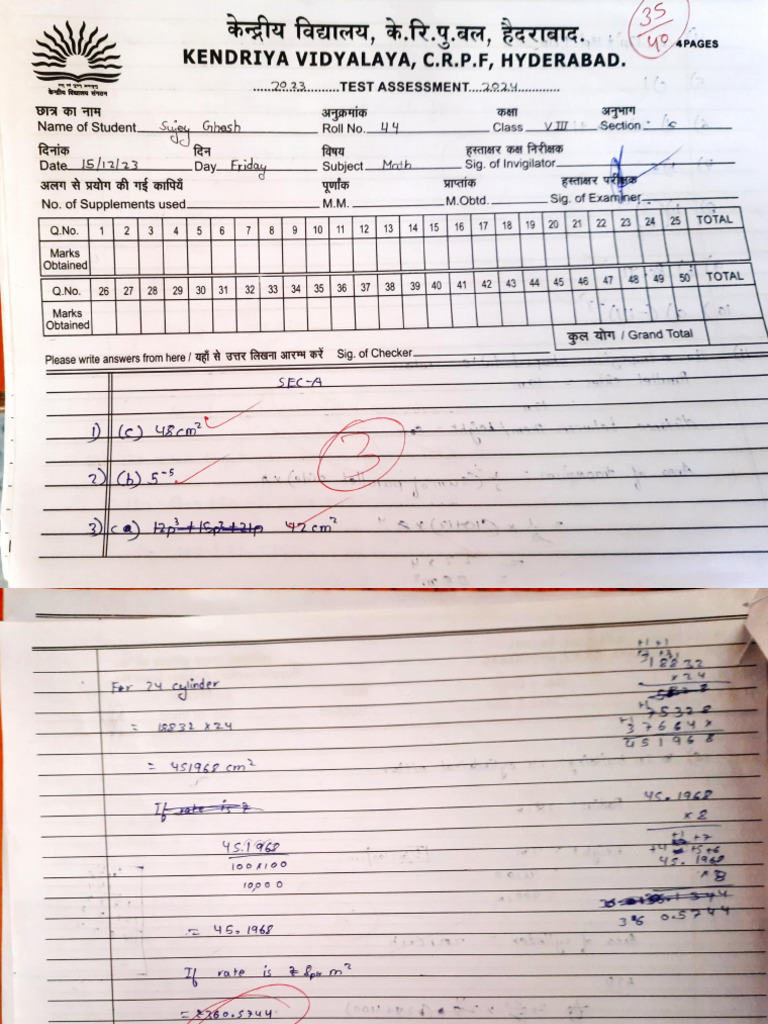 केन्द्रीय विद्यालय, के.रि.पु.बल, हैदराबाद.
35/40
4 PAGES
KENDRIYA VIDYALAYA, C.R.P.F, HYDERABAD.
केन्द्रीय विद्यालय संगठन
2023 TEST ASSESSMENT 2024
छात्र का नाम अनुक्रमांक कक्षा अनुभाग
Name of Student Sujoy Ghosh Roll No. 44 Class VIII Section
दिनांक दिन विषय हस्ताक्षर कक्ष निरीक्षक
Date 15/12/23 Day Friday Subject Math Sig. of Invigilator
अलग से प्रयोग की गई कापियाँ पूर्णांक प्राप्तांक हस्ताक्षर परीक्षक
No. of Supplements used M.M. M.Obtd. Sig. of Examiner
Q.No. 1 2 3 4 5 6 7 8 9 10 11 12 13 14 15 16 17 18 19 20 21 22 23 24 25 TOTAL
Marks Obtained
Q.No. 26 27 28 29 30 31 32 33 34 35 36 37 38 39 40 41 42 43 44 45 46 47 48 49 50 TOTAL
Marks Obtained
कुल योग / Grand Total
Please write answers from here / यहाँ से उत्तर लिखना आरम्भ करें Sig. of Checker
SEC-A
1) (c) 48cm²
3
2) (b) 5⁻⁵
3) (a) 12p³+15p²+21p 42cm²
For 24 cylinder
18832
×24
= 18832 × 24
75328
37664×
451968
= 451968 cm²
If rate is ₹
45.1968
×8
45.1968
100×100
10,000
45.1968
×8
360.5744
= 45.1968
If rate is ₹ 8 per m²
= ₹360.5744